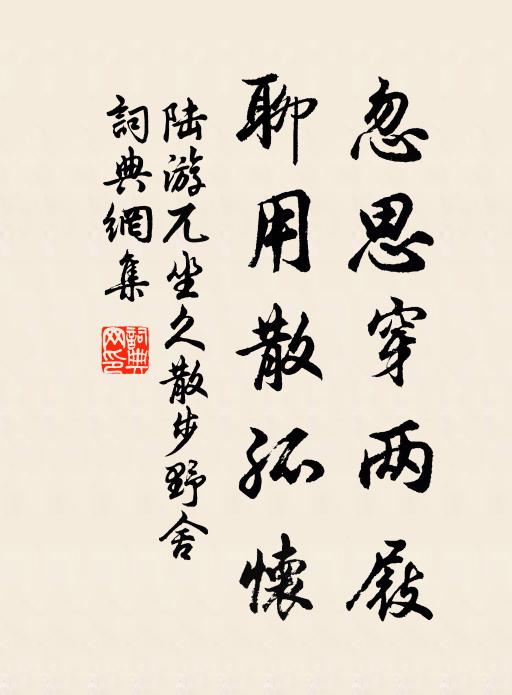 忽思穿两屐
聊用散孤懷
陆游兀坐久散步野舍
詞典網集
詞典网印